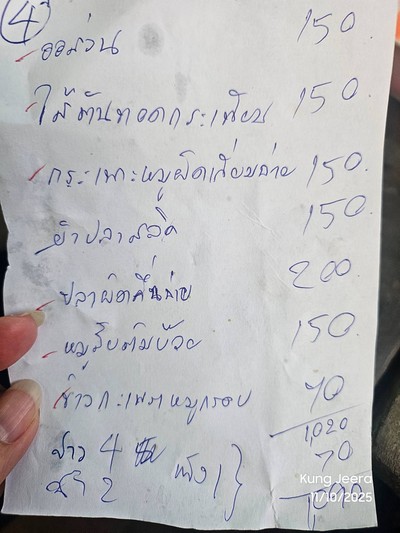 ④
ออส่วน 150.
ไส้ตันทอดกระเทียม 150.
กระเพาะหมูผัดเกี่ยมฉ่าย 150.
ยำปลาสลิด 150.
ปลาผัดคื่นฉ่าย 200.
หมูสับต้มบ๊วย 150.
ข้าวกะเพราหมูกรอบ 70
1,020
ข้าว 4 70
น้ำ 2 แข็ง 1 }
Kung Jeera
11/10/2025